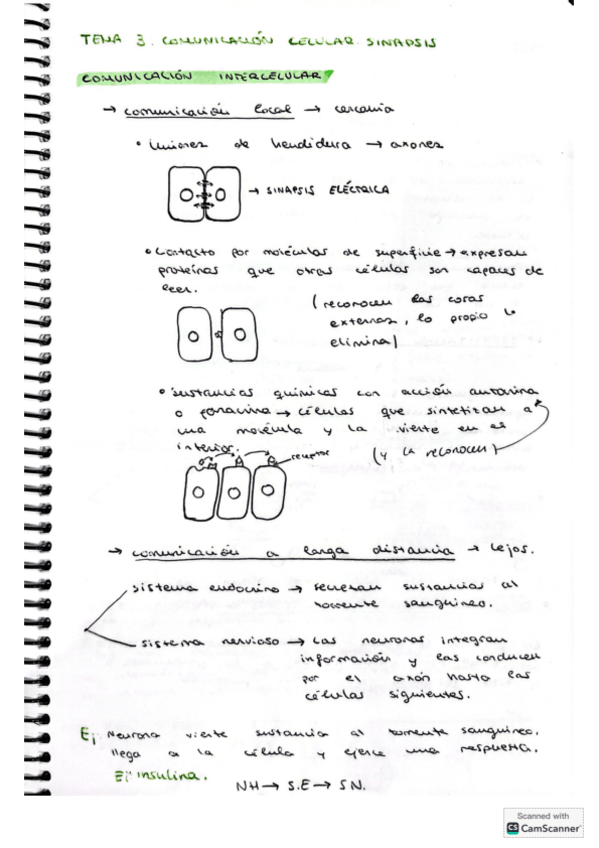 TEMA 3. COMUNICACIÓN CELULAR. SINAPSIS
COMUNICACIÓN INTERCELULAR
→ comunicación local → cercania
• Uniones de hendidura → axones
→ SINAPSIS ELÉCTRICA
• Contacto por moléculas de superficie → expresan
proteínas que otras células son capaces de
leer.
(reconocen las cosas
externas, lo propio lo
elimina)
• Sustancias químicas con acción autocrina
o paracrina → células que sintetizan a
una molécula y la vierte en el
interior.
(y la reconocen)
receptor
→ comunicación a larga distancia → lejos.
sistema endocrino → secretan sustancias al
torrente sanguineo.
sistema nervioso → Las neuronas integran
información y las conducen
por el axón hasta las
células siguientes.
Ej Neurona vierte sustancia al torrente sanguineo.
llega a la célula y ejerce una respuesta.
Ej: insulina.
NH → S.E → SN.
Scanned with
CS CamScanner